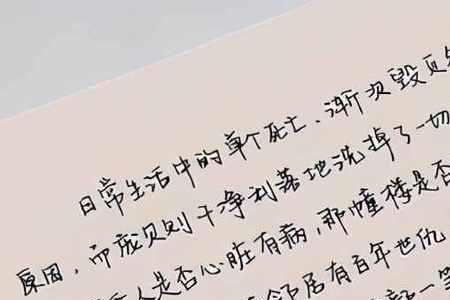 日常生活中的单个死亡、渐次毁见
原因，而庞贝则干净利落地洗掉了一切
人是否心脏有病，那幢楼是否
邻居有百年世仇
一笔